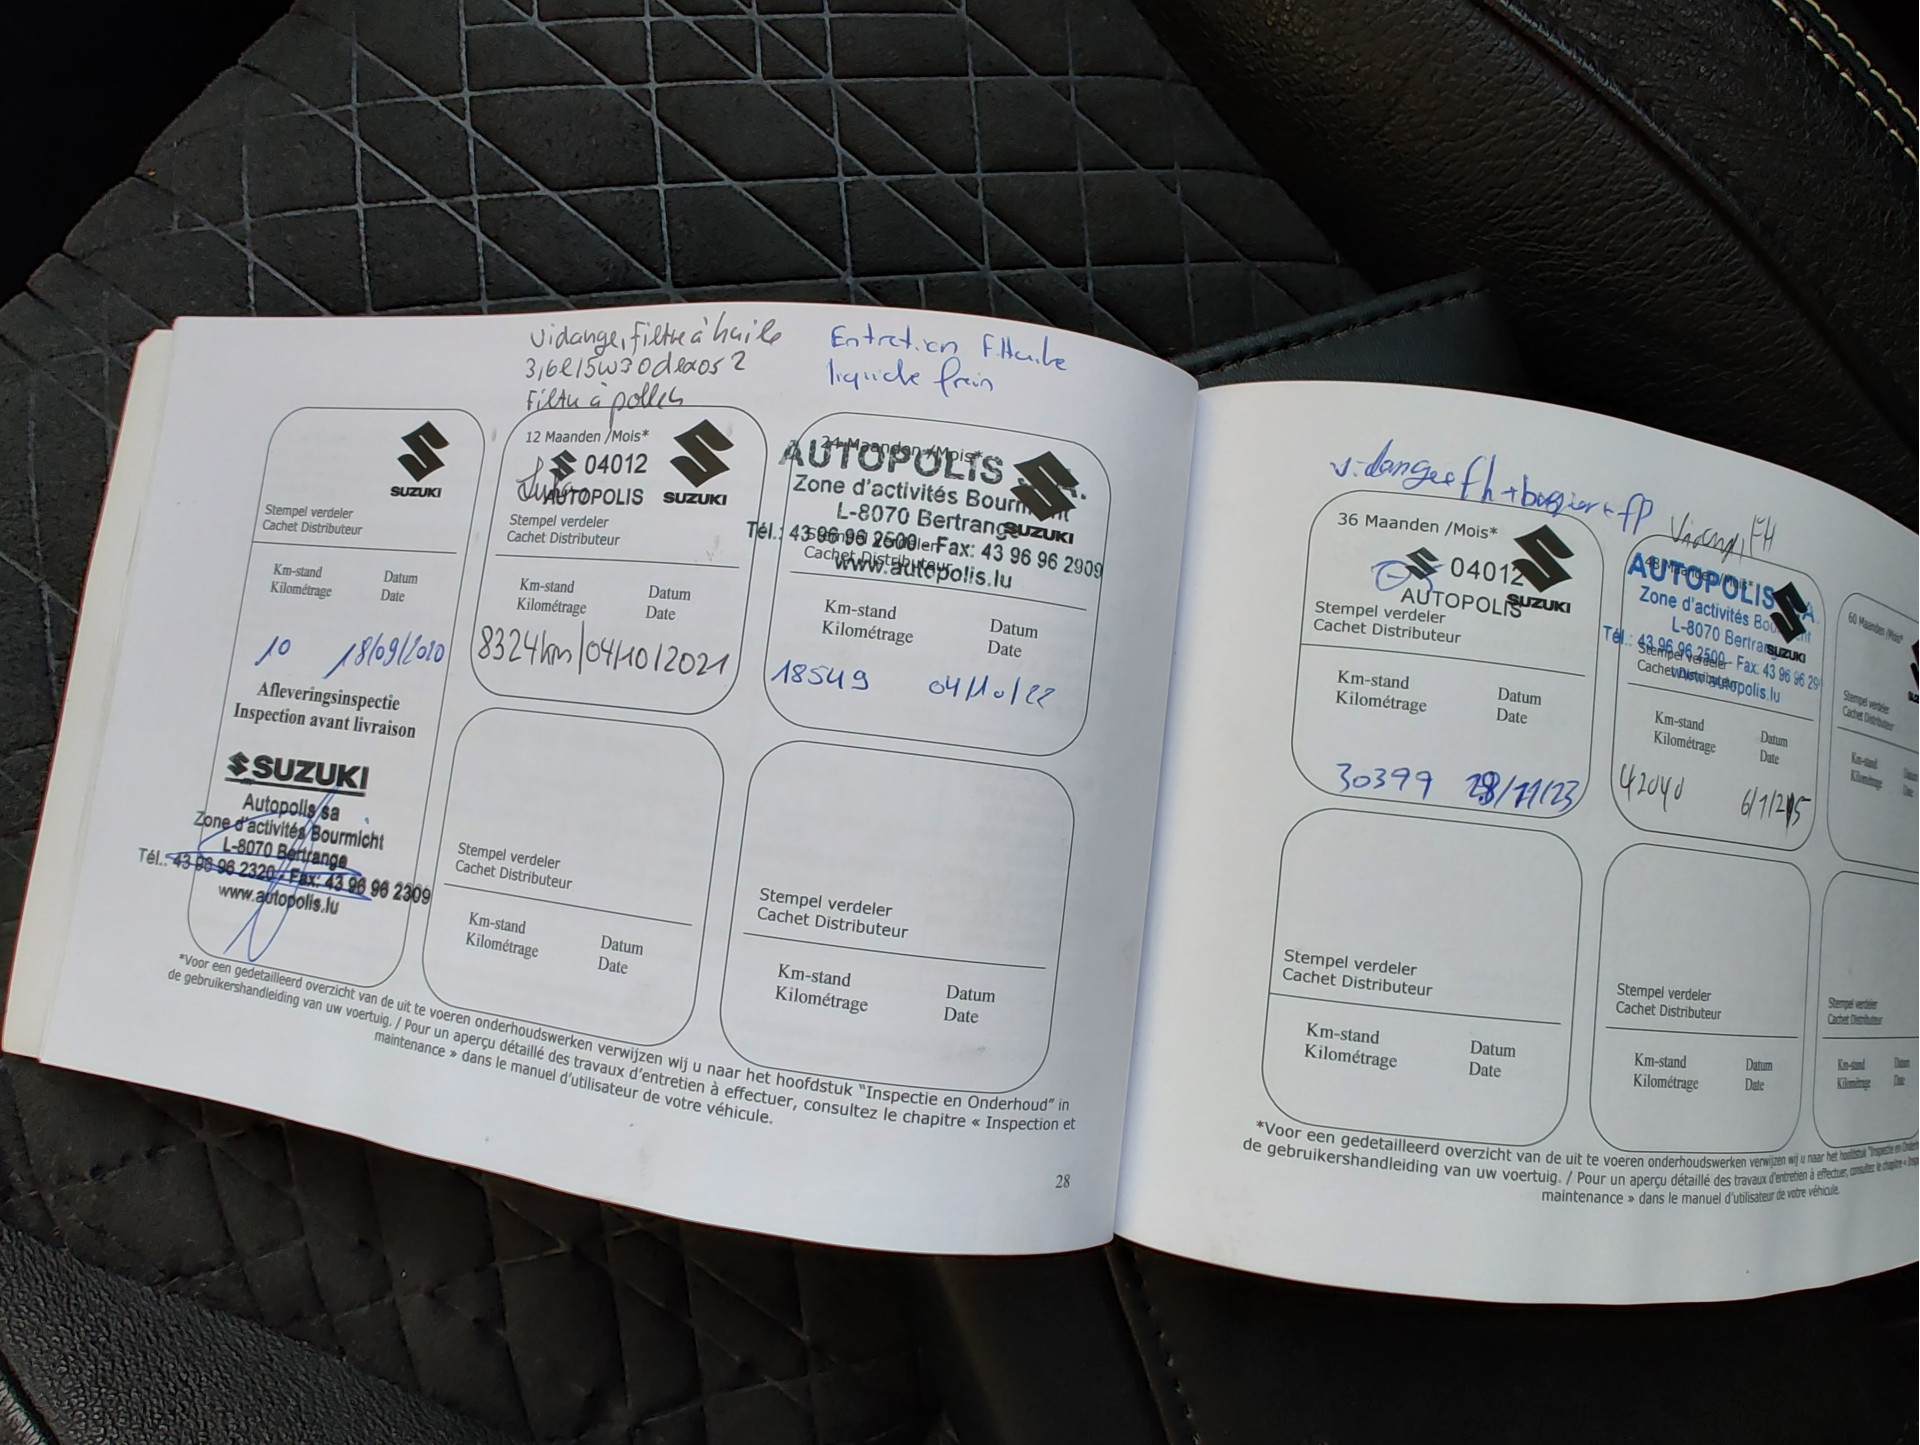 vidange, filtre à huile
3,6l 5w30 dexos 2
Filtre à pollen
Entretien F.Huile
liquide frein
SUZUKI
Stempel verdeler
Cachet Distributeur
Km-stand Datum
Kilométrage Date
10 18/09/2020
Afleveringsinspectie
Inspection avant livraison
SUZUKI
Autopolis sa
Zone d'activités Bourmicht
L-8070 Bertrange
Tél.: 43 96 96 2320 - Fax: 43 96 96 2309
www.autopolis.lu
12 Maanden /Mois*
04012
AUTOPOLIS SUZUKI
Stempel verdeler
Cachet Distributeur
Km-stand Datum
Kilométrage Date
8324km/04/10/2021
24 Maanden /Mois*
AUTOPOLIS S.A.
Zone d'activités Bourmicht
L-8070 Bertrange
SUZUKI
Tél.: 43 96 96 2500 - Fax: 43 96 96 2909
Stempel verdeler
Cachet Distributeur
www.autopolis.lu
Km-stand Datum
Kilométrage Date
18549 04/10/22
Stempel verdeler
Cachet Distributeur
Km-stand Datum
Kilométrage Date
Stempel verdeler
Cachet Distributeur
Km-stand Datum
Kilométrage Date
*Voor een gedetailleerd overzicht van de uit te voeren onderhoudswerken verwijzen wij u naar het hoofdstuk "Inspectie en Onderhoud" in
de gebruikershandleiding van uw voertuig. / Pour un aperçu détaillé des travaux d'entretien à effectuer, consultez le chapitre « Inspection et
maintenance » dans le manuel d'utilisateur de votre véhicule.
28
vidange fh + bougier + fp
36 Maanden /Mois*
04012
AUTOPOLIS SUZUKI
Stempel verdeler
Cachet Distributeur
Km-stand Datum
Kilométrage Date
30399 28/11/23
FH
48 Maanden /Mois*
AUTOPOLIS S.A.
Zone d'activités Bourmicht
L-8070 Bertrange
SUZUKI
Tél.: 43 96 96 2500 - Fax: 43 96 96 29
Stempel verdeler
Cachet Distributeur
www.autopolis.lu
Km-stand Datum
Kilométrage Date
42040
60 Maanden /Mois*
Stempel verdeler
Cachet Distributeur
Km-stand
Kilométrage
Stempel verdeler
Cachet Distributeur
Km-stand Datum
Kilométrage Date
Stempel verdeler
Cachet Distributeur
Km-stand Datum
Kilométrage Date
Stempel verdeler
Cachet Distributeur
Km-stand Datum
Kilométrage Date
*Voor een gedetailleerd overzicht van de uit te voeren onderhoudswerken verwijzen wij u naar het hoofdstuk "Inspectie en
de gebruikershandleiding van uw voertuig. / Pour un aperçu détaillé des travaux d'entretien à effectuer, consultez le chapitre «
maintenance » dans le manuel d'utilisateur de votre véhicule.